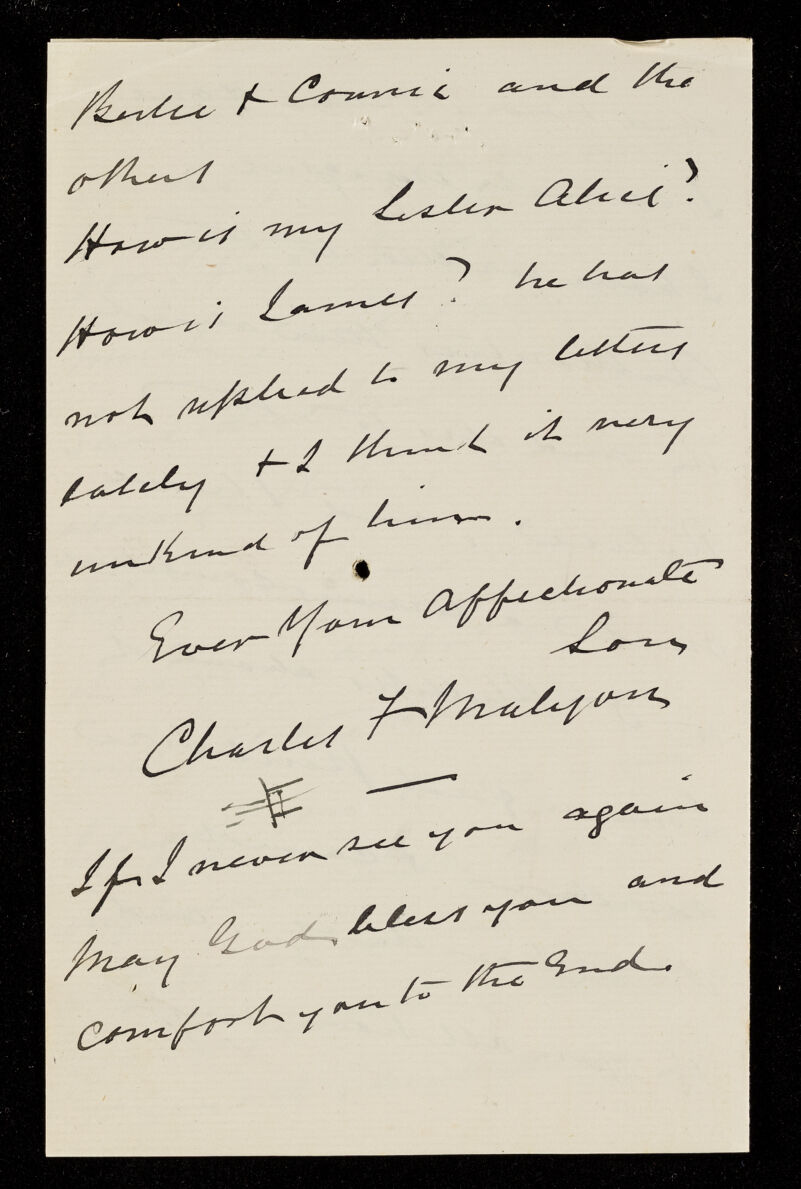 Bertie & Connie and the
others
How is my Sister Alice?
How is James? he has
not replied to my letters
lately & I think it very
unkind of him.
Ever Your Affectionate
Son
Charles F Malyon
If I never see you again
May God bless you and
comfort you to the End.